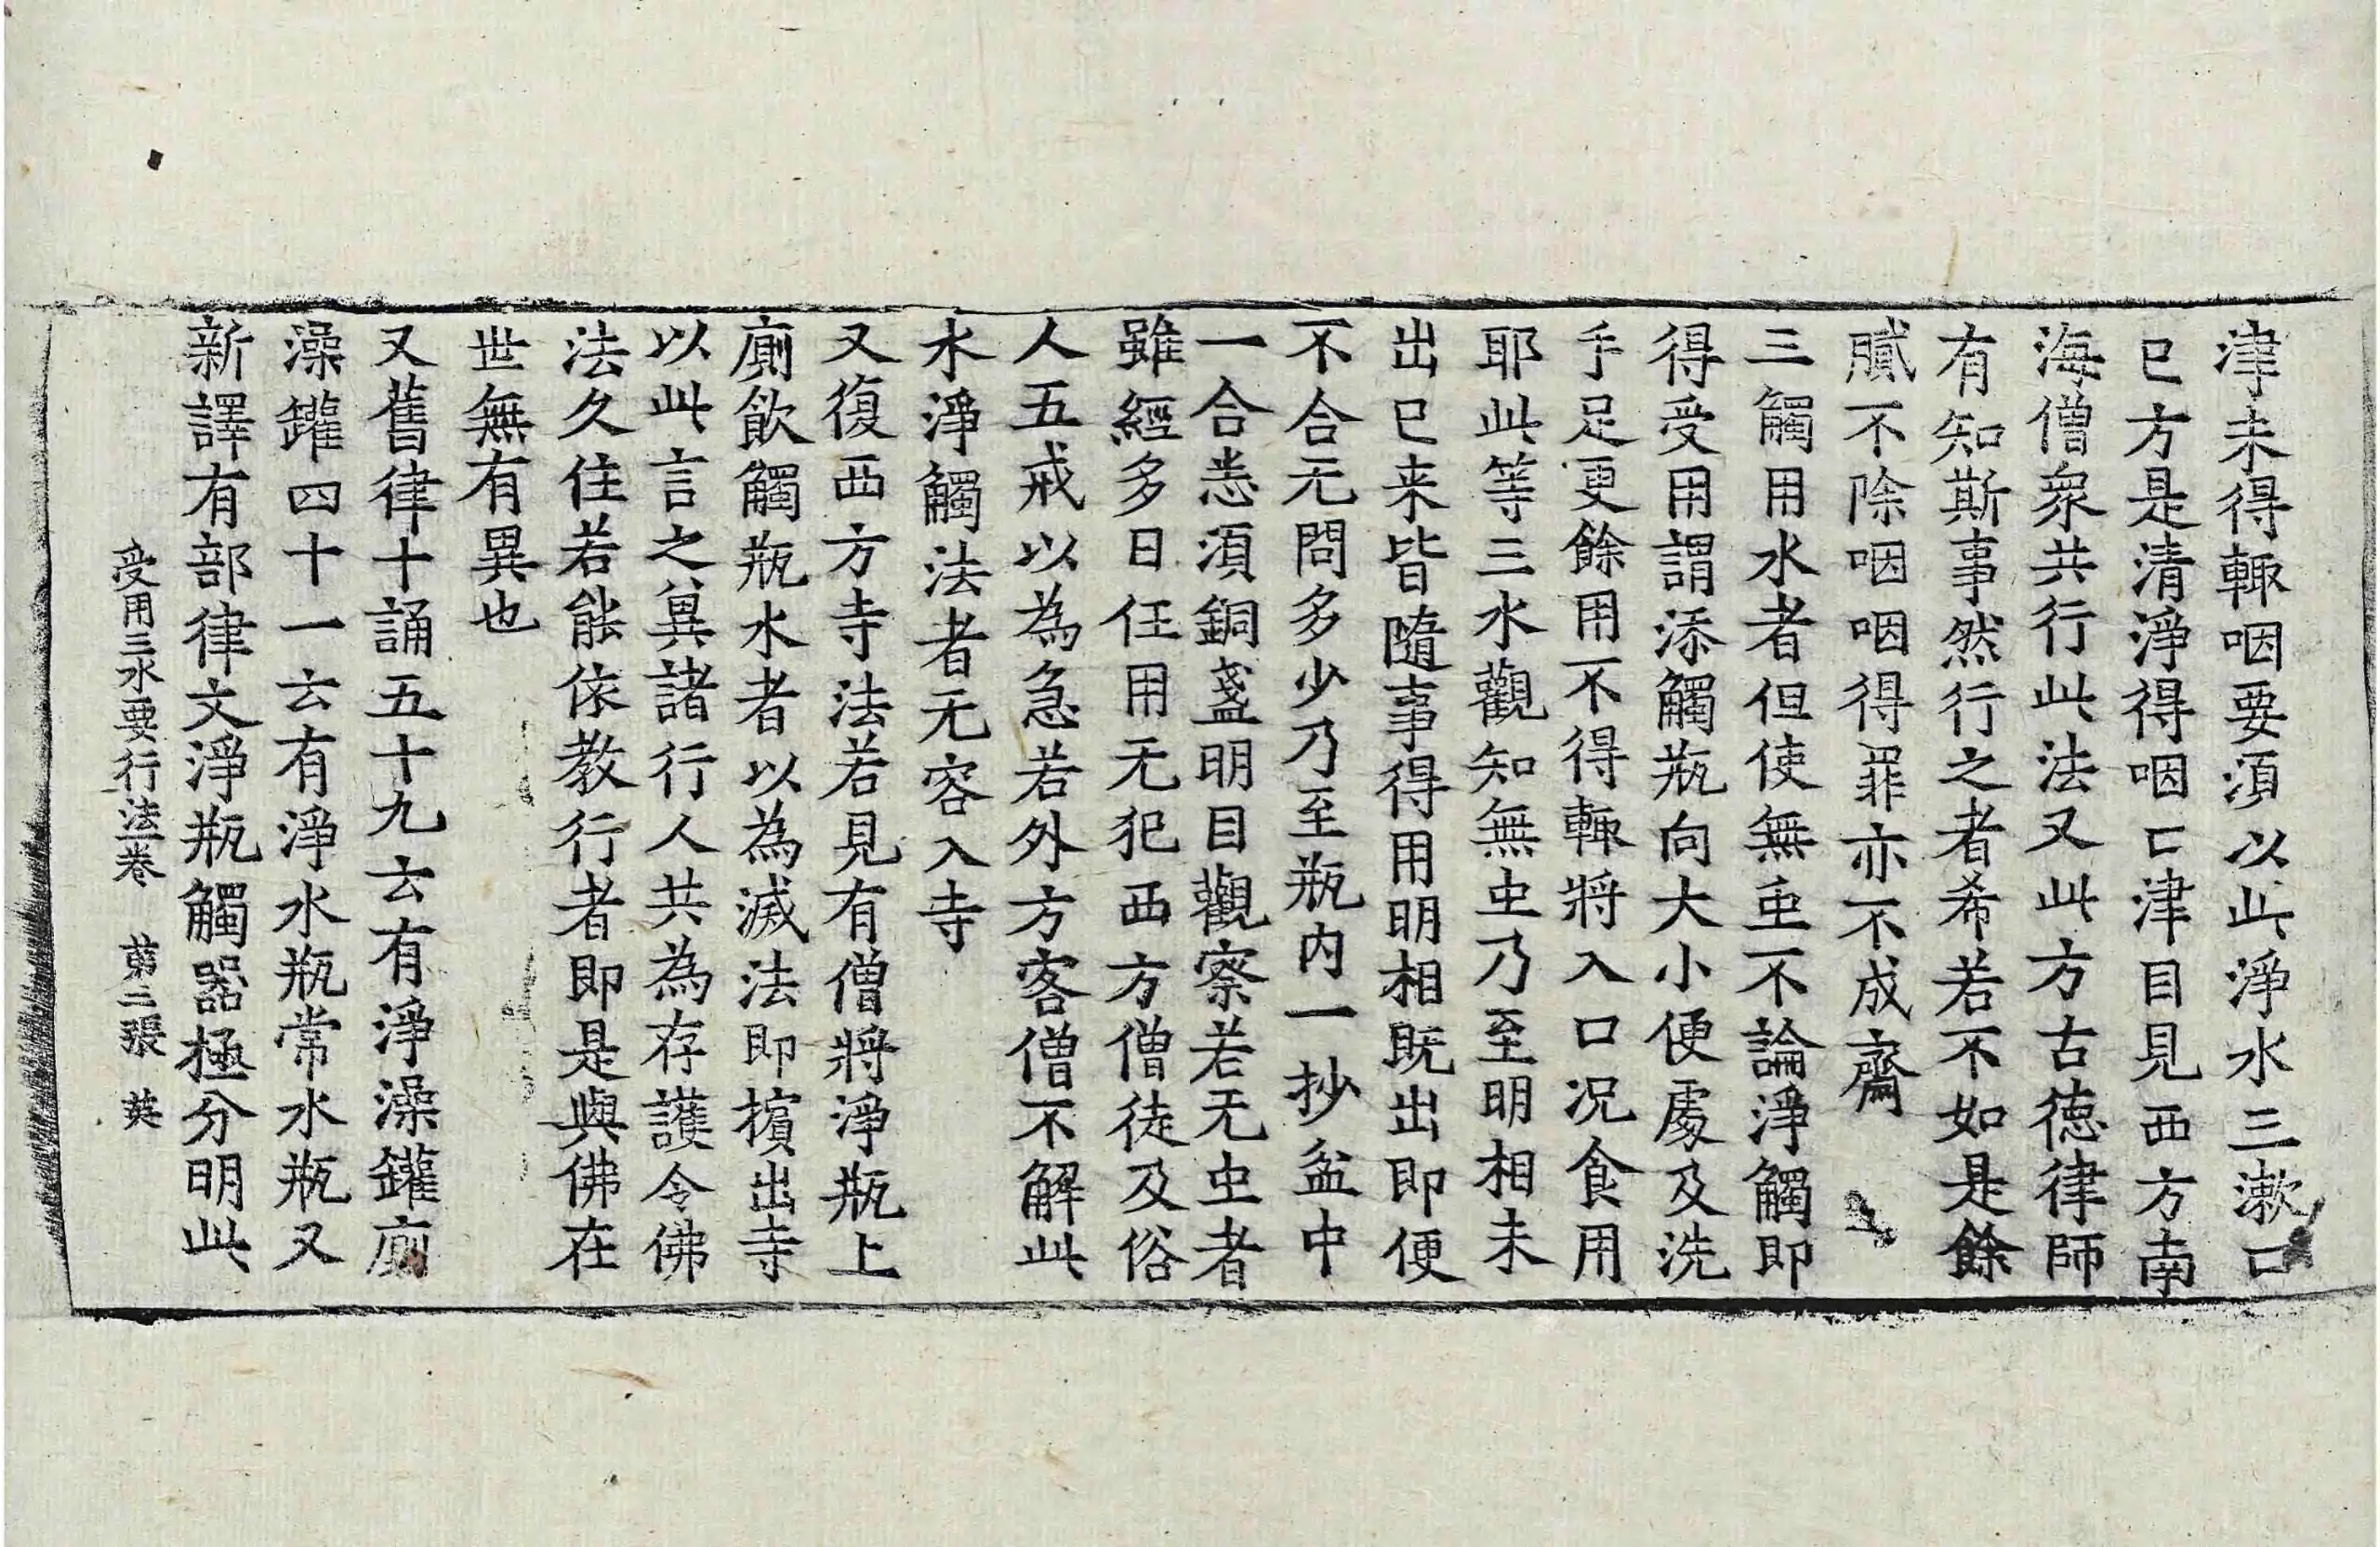 津未得輙咽要湏以此淨水三漱口
已方是清淨得咽口津目見西方南
海僧衆共行此法又此方古德律師
有知斯事然行之者希若不如是餘
膩不除咽咽得罪亦不成齋
三觸用水者但使無虫不論淨觸即
得受用謂添觸瓶向大小便處及洗
手足更餘用不得輙將入口况食用
耶此等三水觀知無虫乃至明相未
出已来皆隨事得用明相既出即便
不合无問多少乃至瓶内一抄盆中
一合悉湏銅盞明目觀察若无虫者
雖經多日任用无犯西方僧徒及俗
人五戒以為急若外方客僧不解此
水淨觸法者无容入寺
又復西方寺法若見有僧將淨瓶上
廁飲觸瓶水者以為滅法即擯出寺
以此言之兾諸行人共為存護令佛
法久住若能依教行者即是與佛在
世無有異也
又舊律十誦五十九云有淨澡罐廁
澡罐四十一云有淨水瓶常水瓶又
新譯有部律文淨瓶觸器極分明此
受用三水要行法一卷　苐二張　英